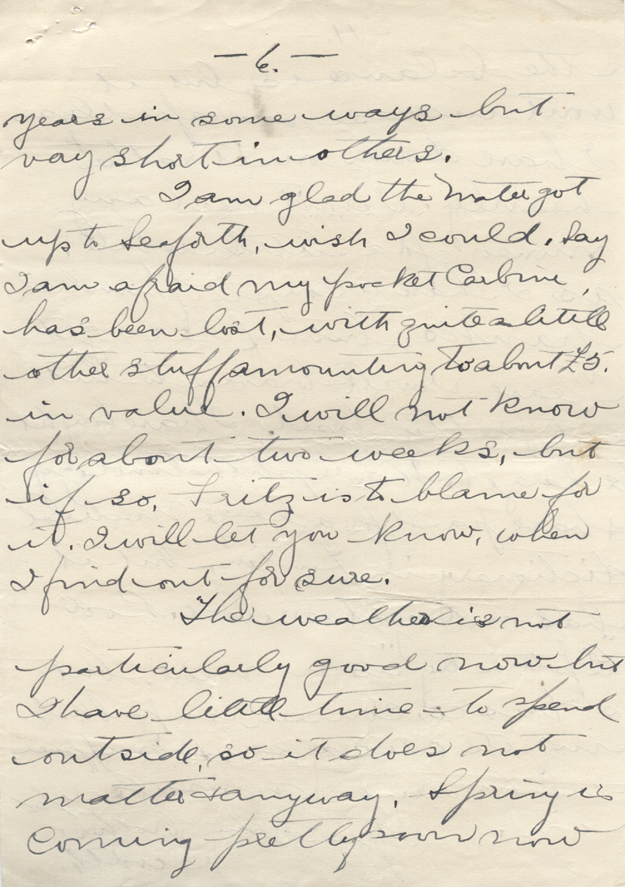 — 6. —
years in some ways but
very short in others.
I am glad the Mater got
up to Seaforth, wish I could. Say
I am afraid my pocket Carbine,
has been lost, with quite a little
other stuff amounting to about £5.
in value. I will not know
for about two weeks, but
if so, Fritz is to blame for
it. I will let you know, when
I find out for sure.
The weather is not
particularly good now but
I have little time to spend
outside, so it does not
matter anyway. Spring is
coming pretty soon now